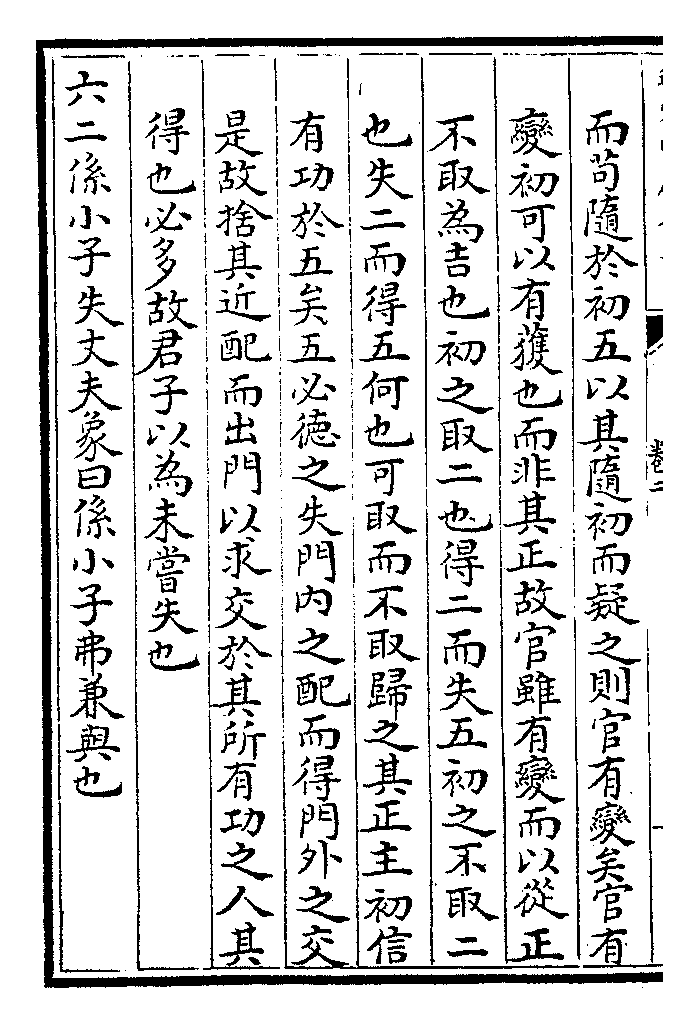 而苟隨於初五以其隨初而疑之則官有變矣官有
變初可以有獲也而非其正故官雖有變而以從正
不取為吉也初之取二也得二而失五初之不取二
也失二而得五何也可取而不取歸之其正主初信
有功於五矣五必德之失門內之配而得門外之交
是故捨其近配而出門以求交於其所有功之人其
得也必多故君子以為未嘗失也
六二係小子失丈夫象曰係小子弗兼與也
卷二